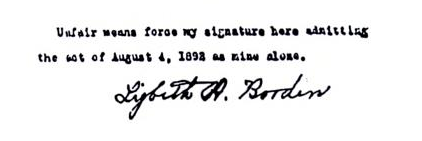 Unfair means force my signature here admitting
the act of August 4, 1892 as mine alone.
Lizbeth A. Borden